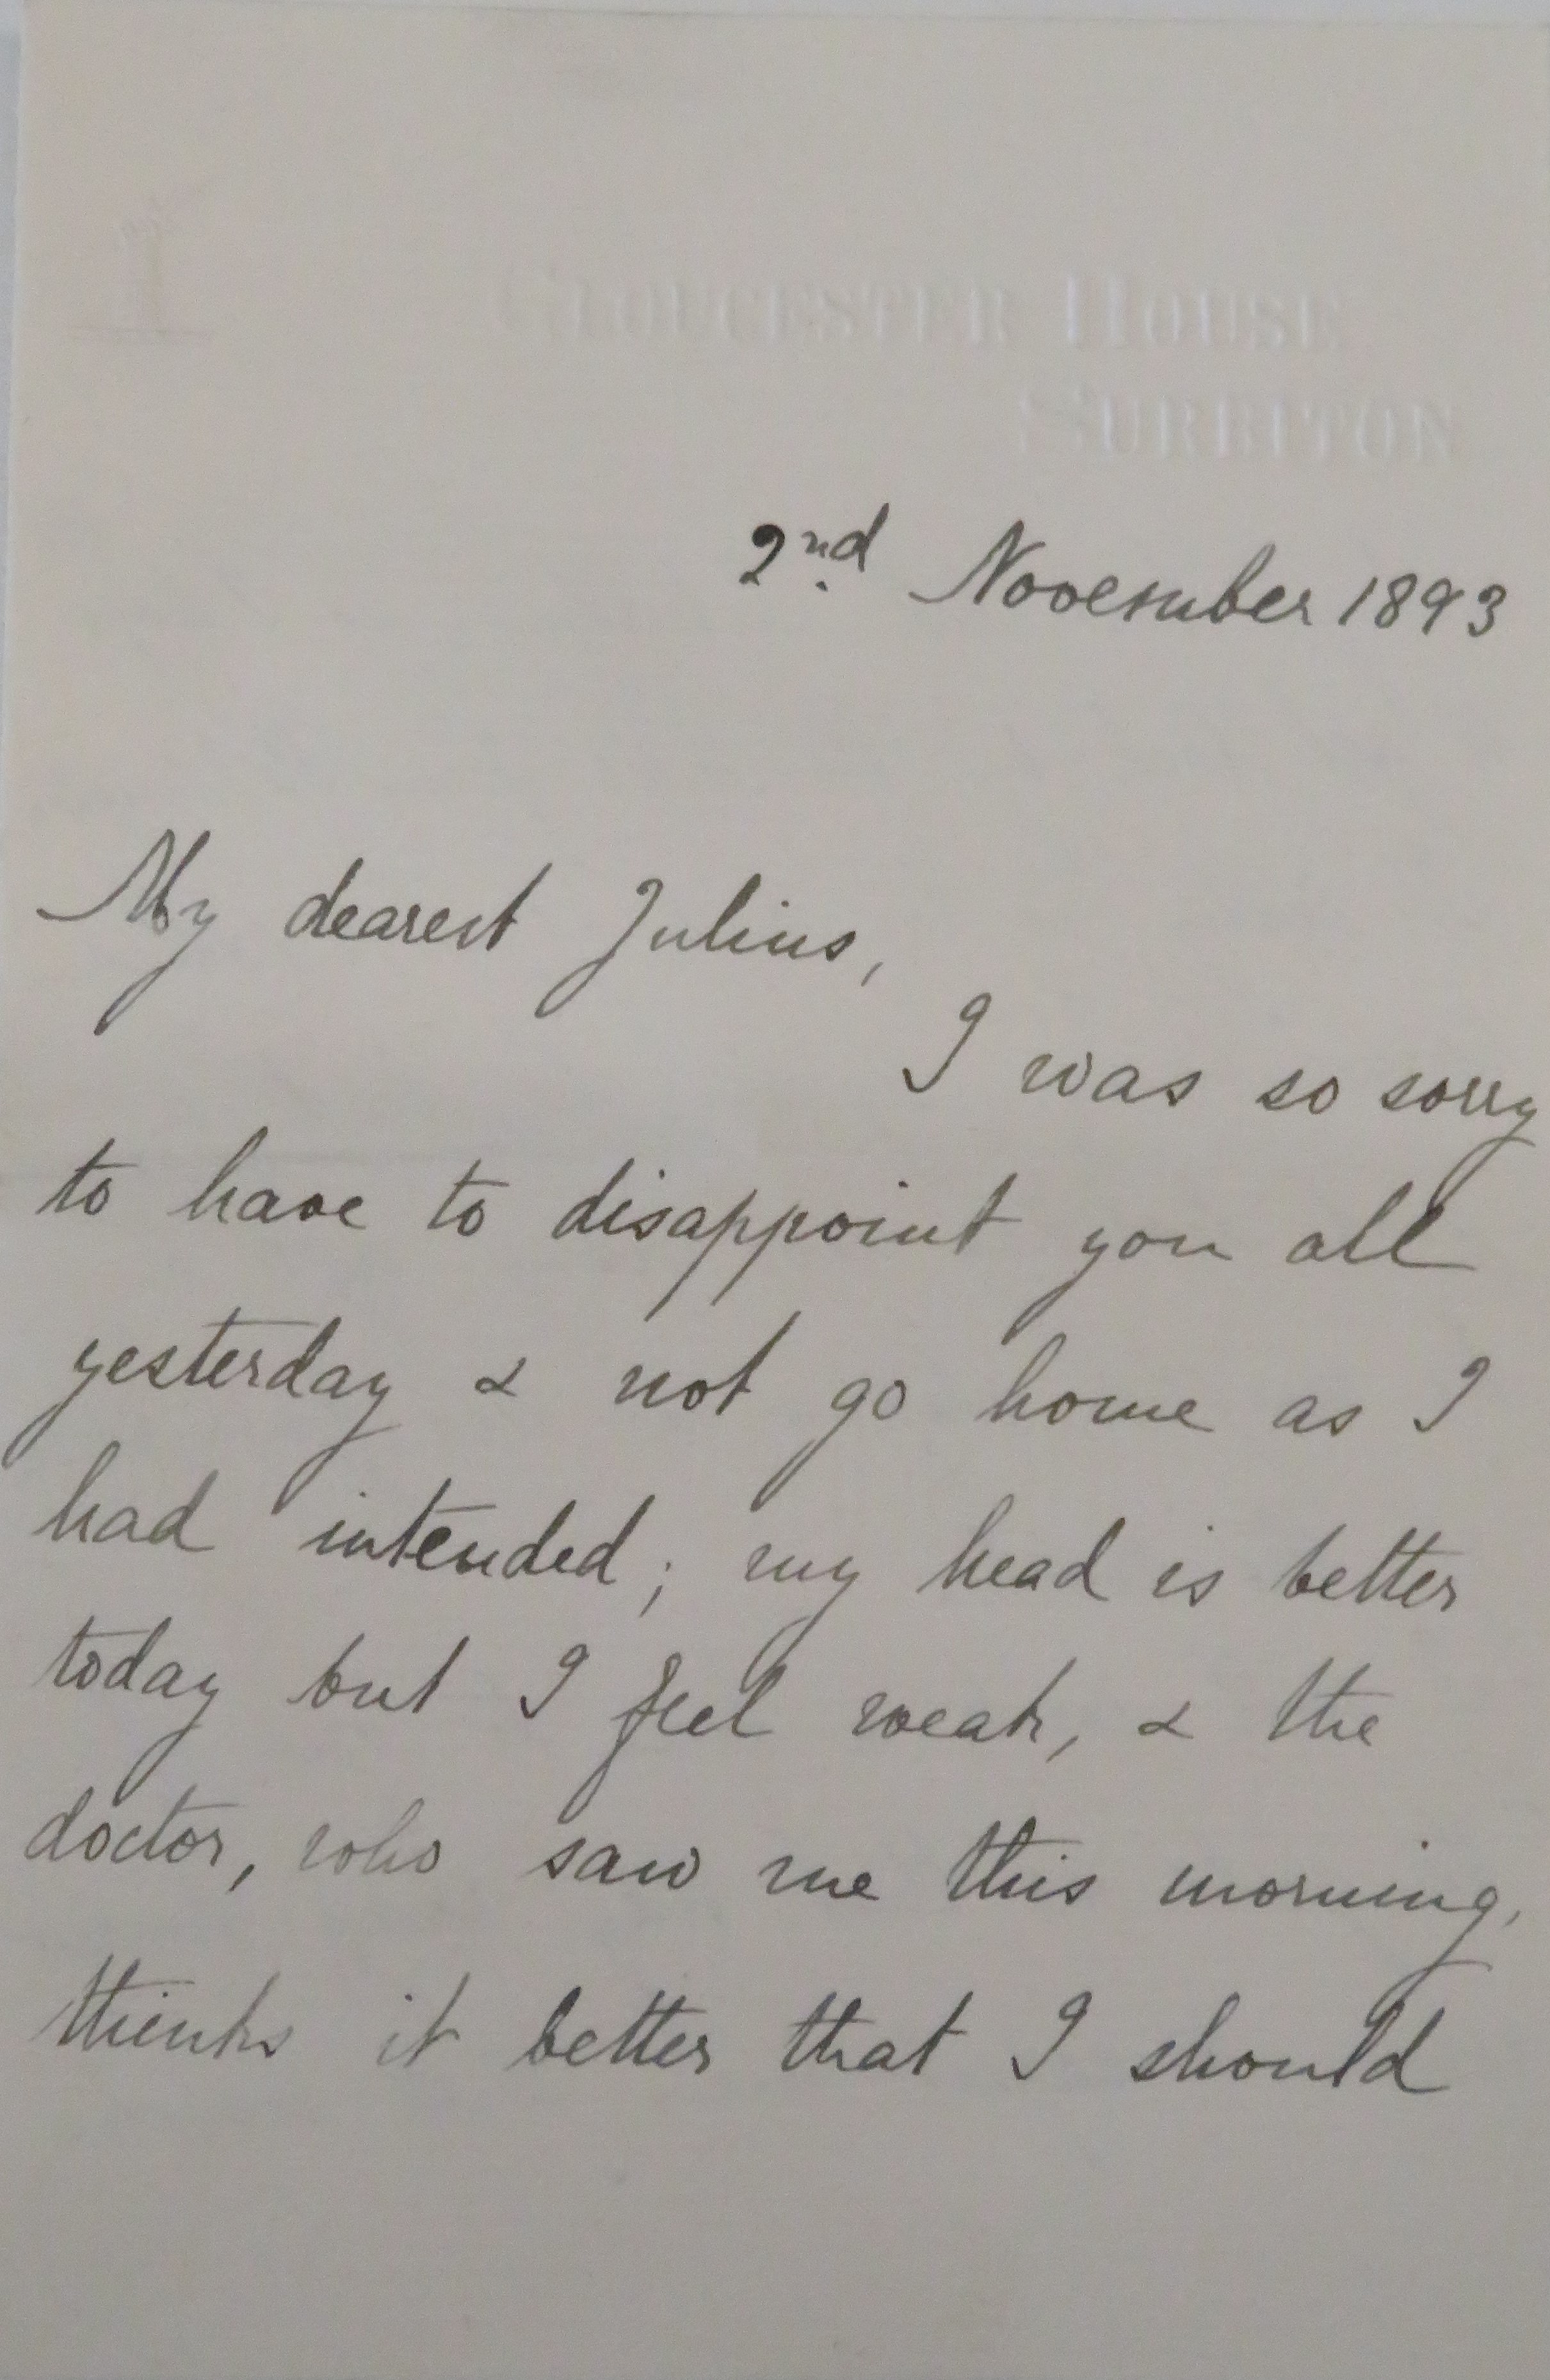 GLOUCESTER HOUSE
SURBITON
2nd November 1893
My dearest Julius,
I was so sorry
to have to disappoint you all
yesterday & not go home as I
had intended; my head is better
today but I feel weak, & the
doctor, who saw me this morning,
thinks it better that I should